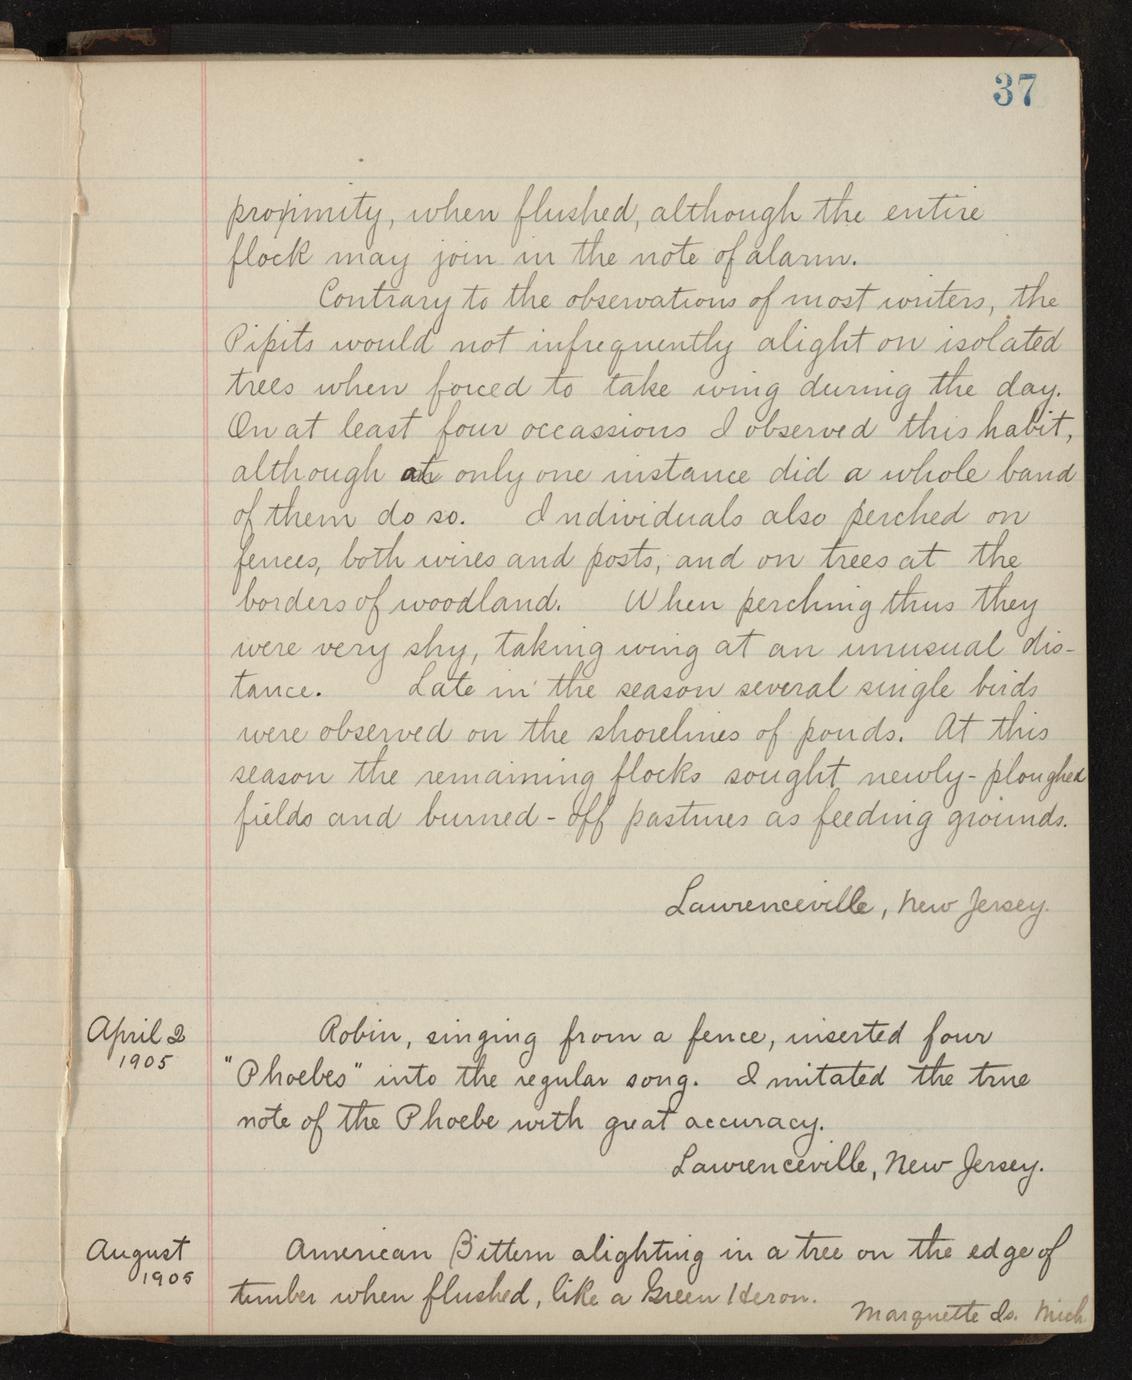 37
proximity, when flushed, although the entire
flock may join in the note of alarm.
Contrary to the observations of most writers, the
Pipits would not infrequently alight on isolated
trees when forced to take wing during the day.
On at least four occassions I observed this habit,
although at only one instance did a whole band
of them do so. Individuals also perched on
fences, both wires and posts, and on trees at the
borders of woodland. When perching thus they
were very shy, taking wing at an unusual dis-
tance. Late in the season several single birds
were observed on the shorelines of ponds. At this
season the remaining flocks sought newly-ploughed
fields and burned-off pastures as feeding grounds.
Lawrenceville, New Jersey.
April 2
1905
Robin, singing from a fence, inserted four
"Phoebes" into the regular song. Imitated the true
note of the Phoebe with great accuracy.
Lawrenceville, New Jersey.
August
1905
American Bittern alighting in a tree on the edge of
timber when flushed, like a Green Heron.
Marquette Is. Mich